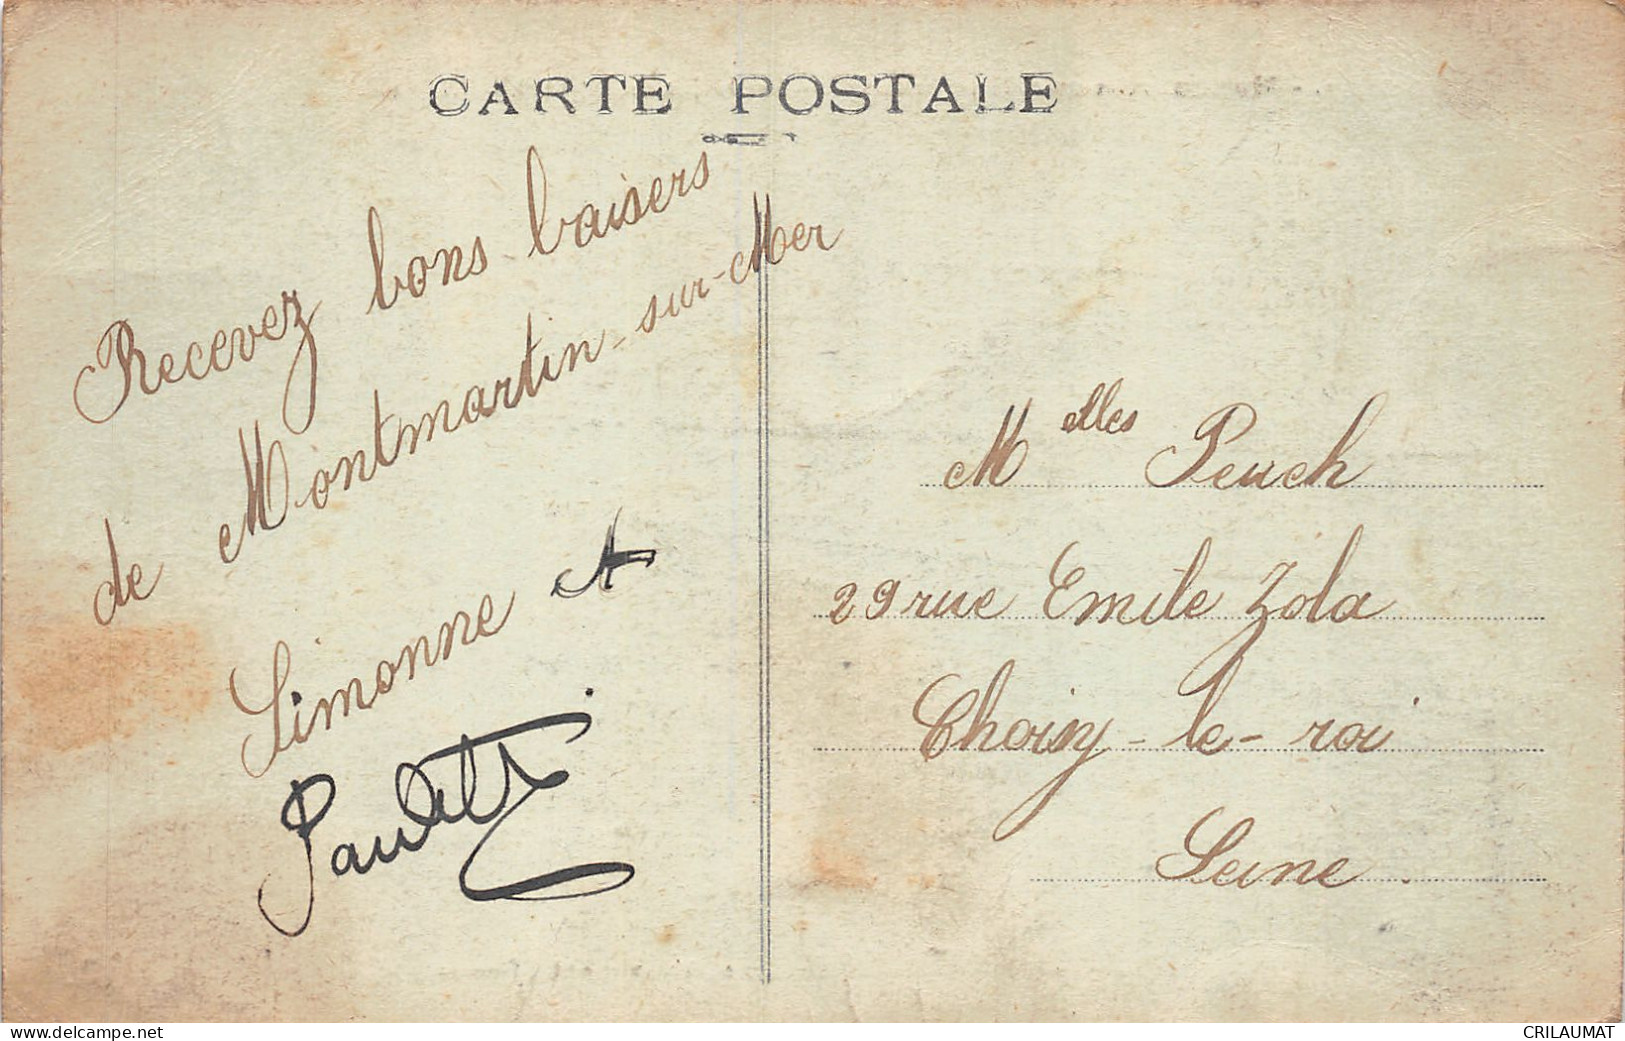 CARTE POSTALE
Recevez bons baisers
de Montmartin-sur-Mer
Simonne A
Paulette
Melles Peuch
29 rue Emile Zola
Choisy-le-roi
Seine.
www.delcampe.net
CRILAUMAT